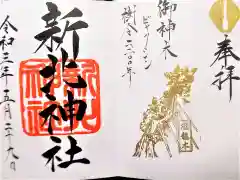 奉拝
御神木
ビャクシン
樹令六二〇年
新北神社
令和三年五月二十九日